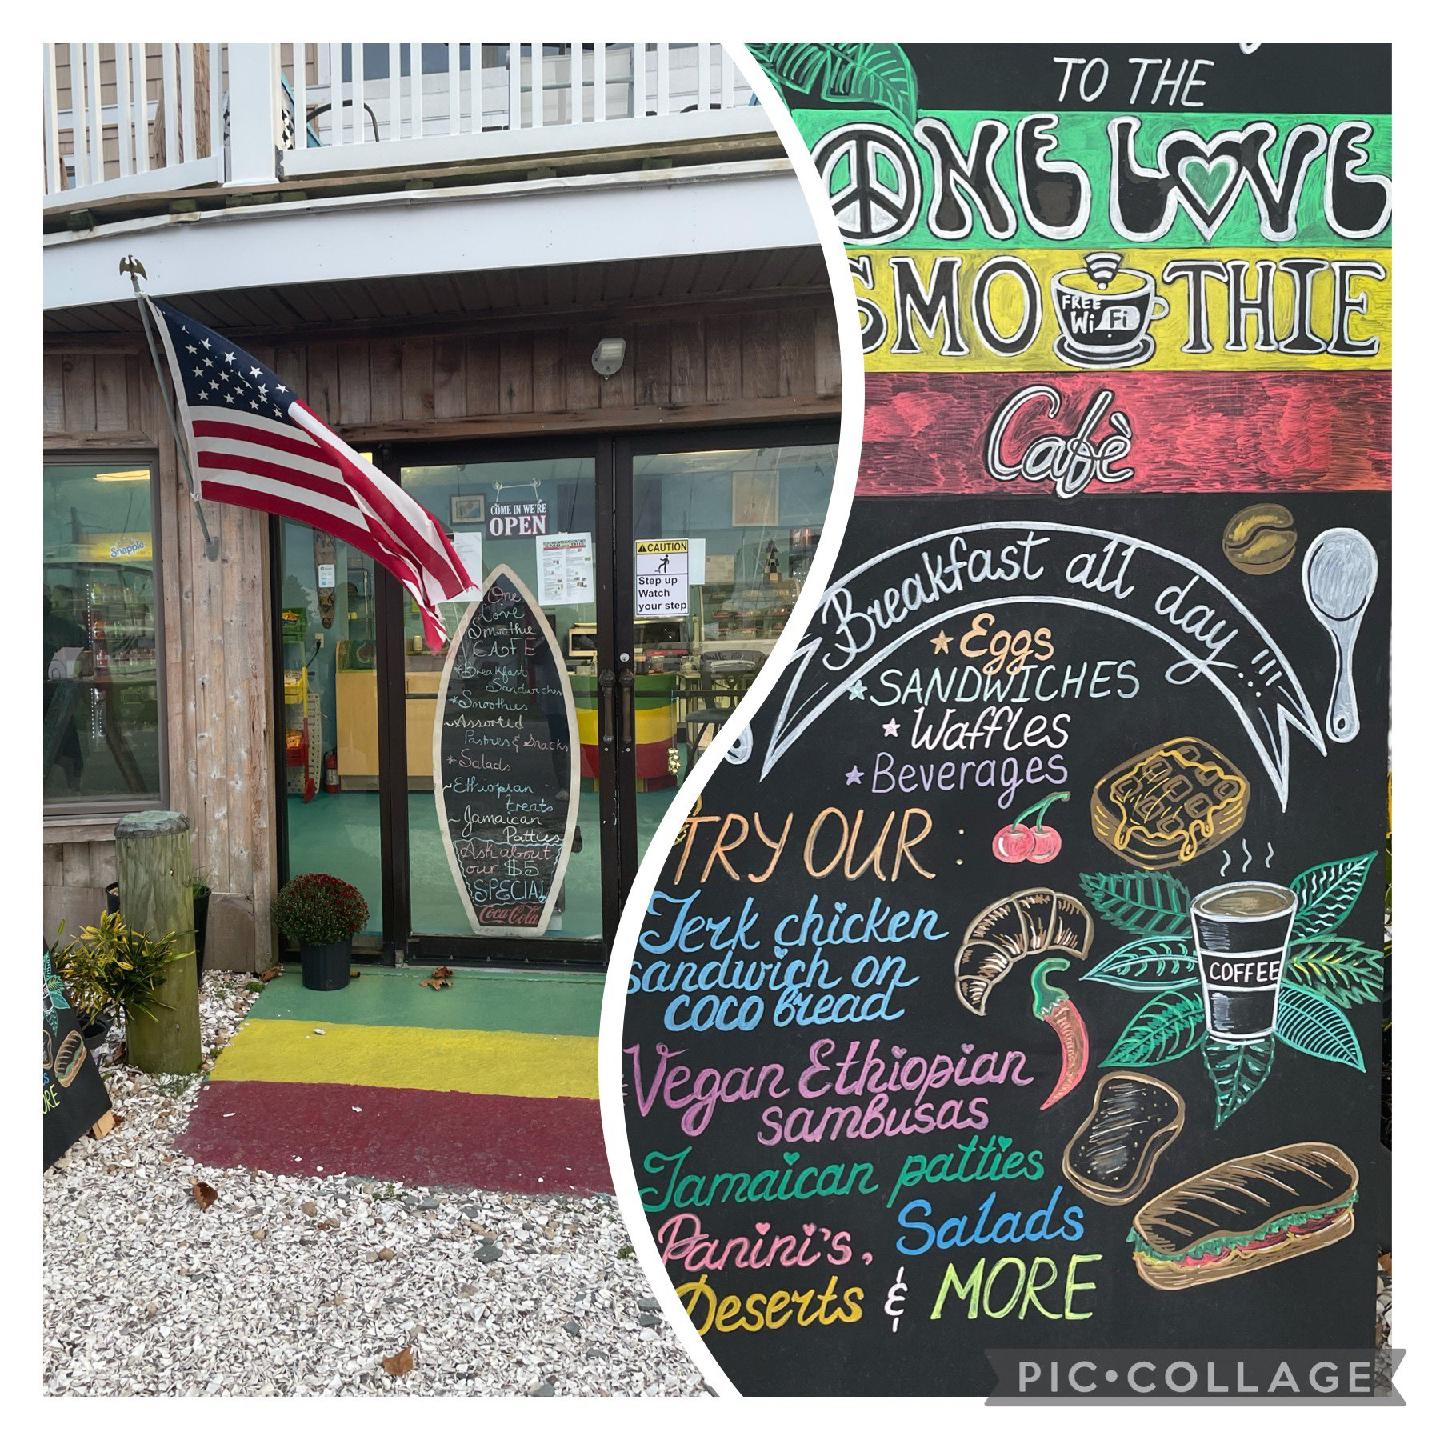 Snapple
COME IN WE'RE
OPEN
CAUTION
Step up
Watch
your step
One
Love
Smoothie
CAFE
*Breakfast
Sandwiches
*Smoothies
~Assorted
Pastries & Snacks
*Salads
~Ethiopian
treats
~Jamaican
Patties
Ask about
our $5
SPECIAL
Coca-Cola
TO THE
ONE LOVE
SMO THIE
FREE
Wi Fi
Cafè
Breakfast all day!!!
★Eggs
★SANDWICHES
★Waffles
★Beverages
TRY OUR :
Jerk chicken
sandwich on
coco bread
COFFEE
Vegan Ethiopian
sambusas
Jamaican patties
Panini's, Salads
Deserts & MORE
PIC•COLLAGE